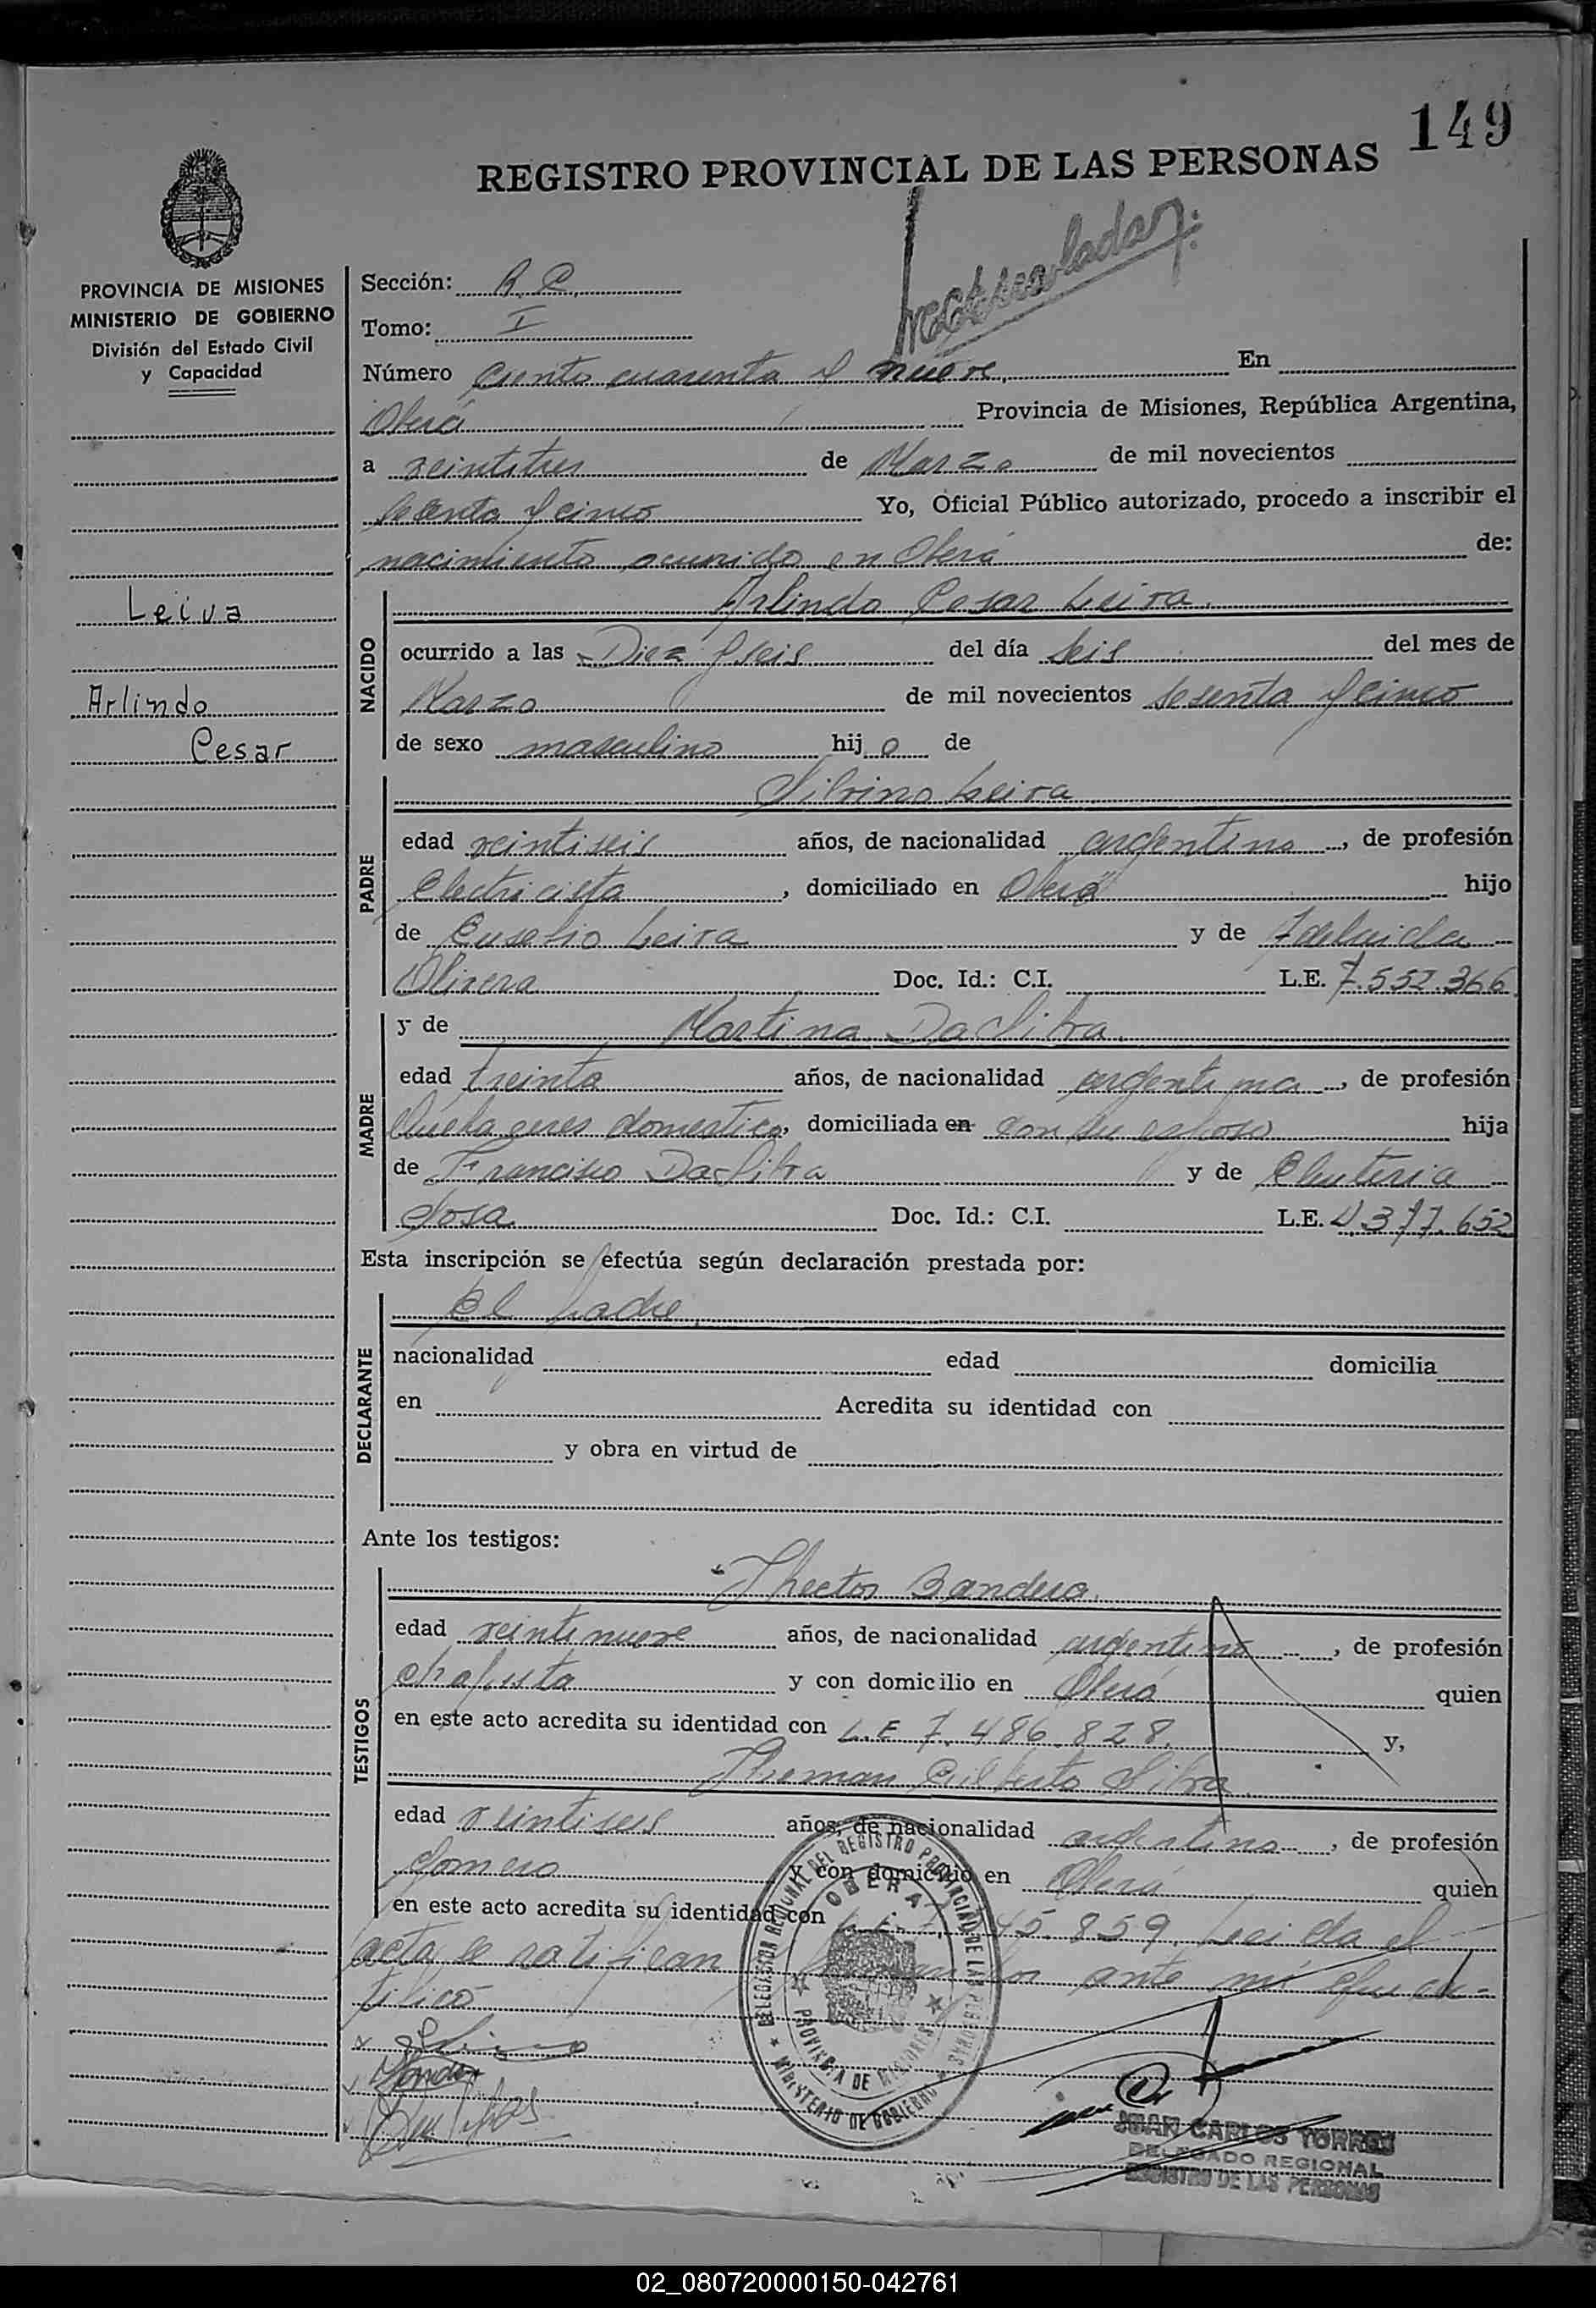 149
REGISTRO PROVINCIAL DE LAS PERSONAS
PROVINCIA DE MISIONES
MINISTERIO DE GOBIERNO
División del Estado Civil
y Capacidad
Leiva
Arlindo
Cesar
Sección:
Tomo: I
Número Ciento cuarenta y nueve. En
Oberá Provincia de Misiones, República Argentina,
a veintitres de Marzo de mil novecientos
sesenta y cinco Yo, Oficial Público autorizado, procedo a inscribir el
nacimiento ocurrido en Oberá de:
NACIDO
Arlindo Cesar Leiva.
ocurrido a las Diez y seis del día seis del mes de
Marzo de mil novecientos sesenta y cinco
de sexo masculino hijo de
PADRE
Silvino Leiva
edad veintiseis años, de nacionalidad argentino, de profesión
Electricista, domiciliado en Oberá hijo
de Eusebio Leiva y de Adelaida
Olivera Doc. Id.: C.I. L.E. 7.552.366
MADRE
y de Martina DaSilva.
edad treinta años, de nacionalidad argentina, de profesión
Quehaceres domestico, domiciliada en con su esposo hija
de Francisco DaSilva y de Eleuteria
Sosa Doc. Id.: C.I. L.E. 377.652
Esta inscripción se efectúa según declaración prestada por:
DECLARANTE
El padre.
nacionalidad edad domicilia
en Acredita su identidad con
y obra en virtud de
Ante los testigos:
TESTIGOS
Bandera.
edad veintinueve años, de nacionalidad argentino, de profesión
chapista y con domicilio en Oberá quien
en este acto acredita su identidad con L.E 7.486.828. y,
Silva.
edad veintiseis años, de nacionalidad argentino, de profesión
gomero y con domicilio en Oberá quien
en este acto acredita su identidad con 45.859. Leida el
acta se ratifican ante mi que cer-
tifico
DELEGACION REGIONAL DEL REGISTRO PROVINCIAL DE LAS PERSONAS
OBERA
PROVINCIA DE MISIONES
MINISTERIO DE GOBIERNO
JUAN CARLOS TORRES
DELEGADO REGIONAL
REGISTRO DE LAS PERSONAS
02_080720000150-042761